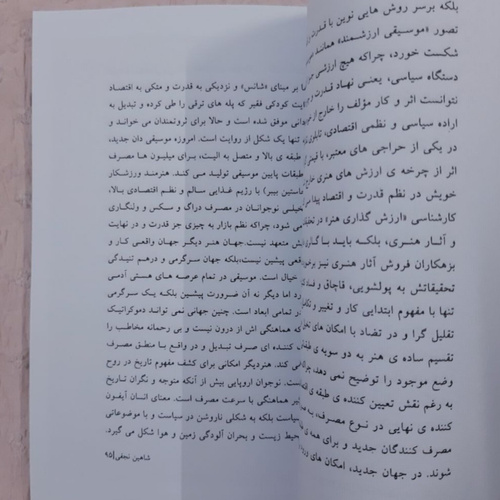 بلکه برسر روش هایی نوین با قدرت
تصور «موسیقی ارزشمند» همانند
شکست خورد، چراکه هیچ ارزشی
دستگاه سیاسی، یعنی نهاد قدرت و
نتوانست اثر و کار مؤلف را خارج از
اراده سیاسی و نظمی اقتصادی، تابلوی
در یکی از حراجی های معتبر، با
اثر از چرخه ی ارزش های هنری خارج
خویش در نظم قدرت و اقتصاد پیدا
کارشناسی «ارزش گذاری هنر» در
و آثار هنری، بلکه باید با
بزهکاران فروش آثار هنری نیز
تحقیقاتش به پولشویی، قاچاق و
تنها با مفهوم ابتدایی کار و تغییر و
تقلیل گرا و در تضاد با امکان های
تقسیم ساده ی هنر به دو سویه ی
وضع موجود را توضیح نمی دهد،
به رغم نقش تعیین کننده ی طبقه ی
کننده ی نهایی در نوع مصرف،
مصرف کنندگان جدید و برای همه ی
شوند. در جهان جدید، امکان های
بر مبنای «شانس» و نزدیکی به قدرت و متکی به اقتصاد
کودکی فقیر که پله های ترقی را طی کرده و تبدیل به
موفق شده است و حالا برای ثروتمندان می خواند و
تنها یک شکل از روایت است. امروزه موسیقی دان جدید،
طبقه ی بالا و متصل به الیت، برای میلیون ها مصرف
طبقات پایین موسیقی تولید می کند. هنرمند ورزشکار
بیبر) با رژیم غذایی سالم و نظم اقتصادی بالا،
نوجوانان در مصرف دراگ و سکس و ولنگاری
می شود، چراکه نظم بازار به چیزی جز قدرت و در نهایت
متعهد نیست.جهان هنر دیگر جهان واقعی کار و
پیشین نیست،بلکه جهان سرگرمی و درهم تنیدگی
خیال است. موسیقی در تمام عرصه های هستی آدمی
اما دیگر نه آن ضرورت پیشین بلکه یک سرگرمی
تمامی ابعاد است. چنین جهانی نمی تواند دموکراتیک
که هماهنگی اش از درون نیست و بی رحمانه مخاطب را
کننده ای صرف تبدیل و در واقع با منطق مصرف
می کند. هنردیگر امکانی برای کشف مفهوم تاریخ در روح
نیست. نوجوان اروپایی بیش از آنکه متوجه و نگران تاریخ
هماهنگی با سرعت مصرف است. معنای انسان آیفون
سیاست بلکه به شکلی ناروشن در سیاست و با موضوعاتی
محیط زیست و بحران آلودگی زمین و هوا شکل می گیرد.
شاهین نجفی|۹۵